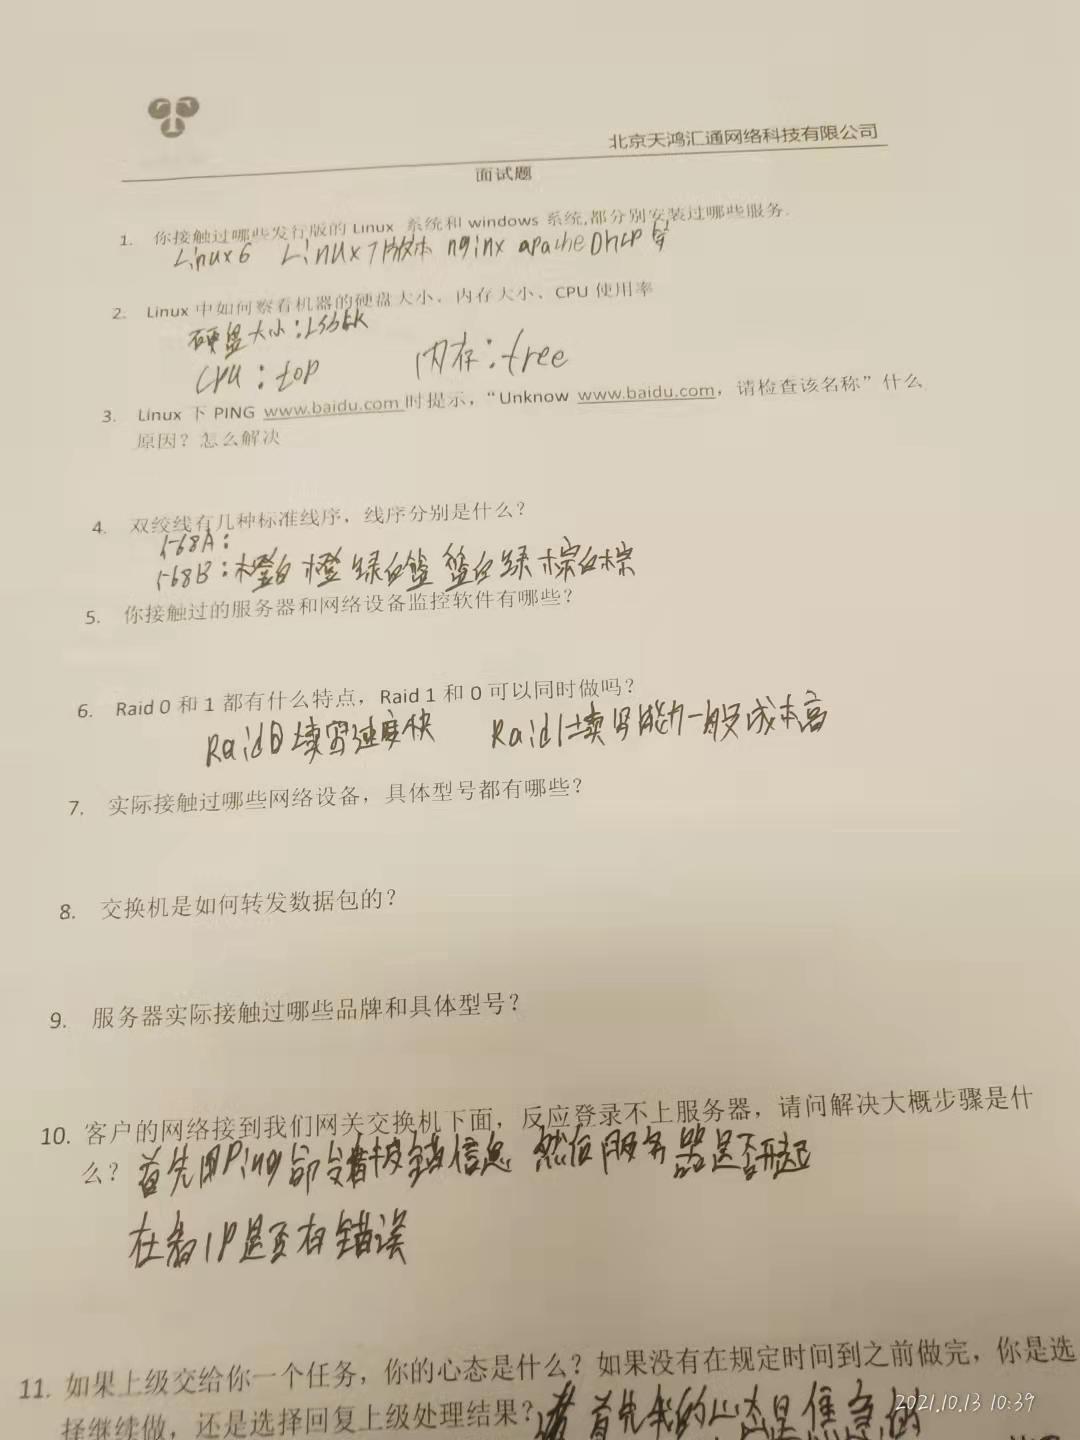 北京天鸿汇通网络科技有限公司
面试题
1. 你接触过哪些发行版的 Linux 系统和 windows 系统,都分别安装过哪些服务.
Linux6 Linux7版本 nginx apache Dhcp 等
2. Linux 中如何察看机器的硬盘大小、内存大小、CPU 使用率
硬盘大小:LSblk
CPU:top 内存:free
3. Linux 下 PING www.baidu.com 时提示，“Unknow www.baidu.com，请检查该名称”什么
原因？怎么解决
4. 双绞线有几种标准线序，线序分别是什么？
568A:
568B:橙白 橙 绿白 蓝 蓝白 绿 棕白 棕
5. 你接触过的服务器和网络设备监控软件有哪些？
6. Raid 0 和 1 都有什么特点，Raid 1 和 0 可以同时做吗？
Raid0读写速度快 Raid1读写能力一般成本高
7. 实际接触过哪些网络设备，具体型号都有哪些？
8. 交换机是如何转发数据包的？
9. 服务器实际接触过哪些品牌和具体型号？
10. 客户的网络接到我们网关交换机下面，反应登录不上服务器，请问解决大概步骤是什
么？首先用Ping命令看报错信息 然后服务器是否开起
在看IP是否有错误
11. 如果上级交给你一个任务，你的心态是什么？如果没有在规定时间到之前做完，你是选
择继续做，还是选择回复上级处理结果？首先我的心态是
2021.10.13 10:39